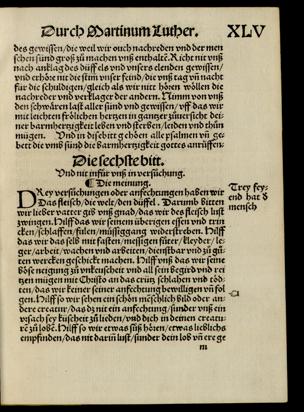 Durch Martinum Luther. XLV
des gewissen/die weil wir ouch nachreden vnd der men
schen sünd groß zu machen vnß enthaltē. Richt nit vnß
nach anklag des düffels vnd vnsers elenden gewissen/
vnd erhöre nit die stim vnser feind/die vnß tag vñ nacht
für die schuldigen/gleich als wir nitt hören wöllen die
nachreder vnd verklager der andern. Nimm von vnß
den schwären last aller sünd vnd gewissen/vff das wir
mit leichten frölichen hertzen in gantzer zůuersicht dei-
ner barmhertzigkeit leben vnd sterben/leiden vnd thůn
mügen. Vnd in dise bitt gehören alle psalmen vñ ge-
bett die vmb sünd die barmhertzigkeit gottes anrüffen
Die sechste bitt.
Vnd nit infür vnß in versůchung.
¶ Die meinung.
DRey versůchungen oder anfechtungen haben wir
Das fleisch/die welt/den düffel. Darumb bitten
wir lieber vatter gib vnß gnad/das wir des fleisch lust
zwingen. Hilff das wir seinem übrigen essen vnd trin
cken/schlaffen/fulen/müssiggang widerstreben. Hilff
das wir das selb mit fasten/messigen fůter/kleyder/le-
ger/arbeit/wachen vnd arbeiten/dienstbar vnd zů gů-
ten wercken geschickt machen. Hilff vnß das wir seine
böse neigung zů vnkeuscheit vnd all sein begird vnd rei
tzen mügen mit Christo an das crütz schlahen vnd töd-
ten/das wir keiner seiner anfechtung bewilligen vñ fol
gen. Hilff so wir sehen ein schön mēschlich bild oder an-
dere creatur/das dz nit ein anfechtung/sunder vnß ein
vrsach sey küscheit zů lieben/vnd dich in deinen creatu-
rē zů lobē. Hilff so wir etwas süß hören/etwas lieblichs
empfinden/das nit darin lust/sunder dein lob vñ ere ge
m
Trey fey-
end hat d̄
mensch